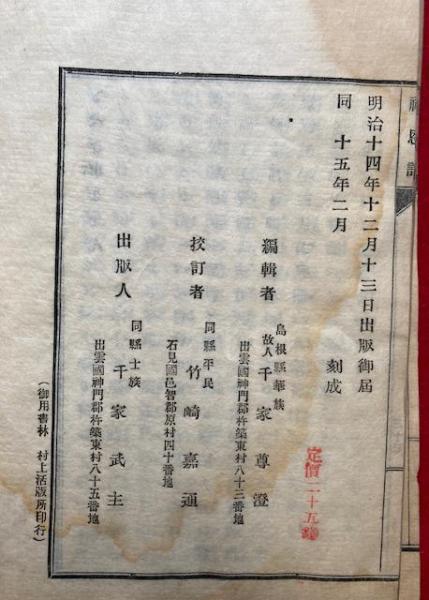 神恩記
明治十四年十二月十三日出版御届
同 十五年二月 刻成
定價二十五錢
編輯者 島根縣華族 故人 千家尊澄
出雲國神門郡杵築東村八十三番地
挍訂者 同縣平民 竹崎嘉通
石見國邑智郡原村四十番地
出版人 同縣士族 千家武主
出雲國神門郡杵築東村八十五番地
（御用書林 村上活版所印行）